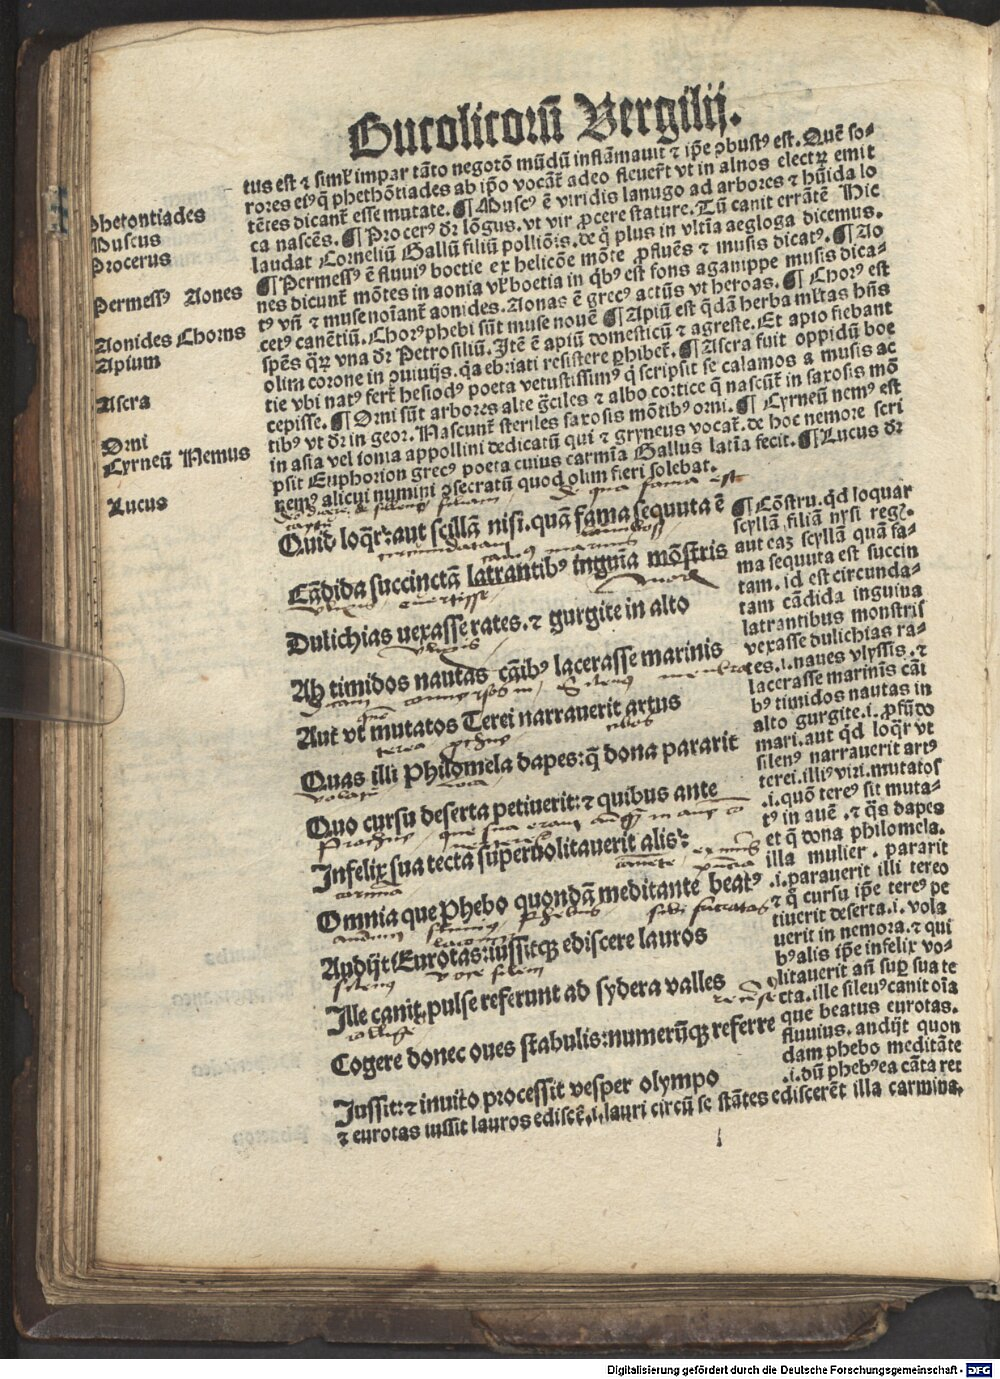 Bucolicorū Vergilij.
tus est ⁊ simk̄ impar tāto negotō mūdū inflāmauit ⁊ ip̄e ꝯbustꝰ est. Quē so-
rores eiꝰq̄ phethōtiades ab ip̄o vocāt̄ adeo fleuer̄t vt in alnos electꝝ emit
tētes dicant̄ esse mutate. ¶ Muscꝰ ē viridis lanugo ad arbores ⁊ hūida lo
ca nascēs. ¶ Procerꝰ dr̄ lōgus. vt vir ꝓcere stature. Tū canit errātē Hic
laudat Corneliū Gallū filiū polliōis. de q̊ plus in vltīa aegloga dicemus.
¶ Permessꝰ ē fluuiꝰ boetie ex helicōe mōte ꝓfluēs ⁊ musis dicatꝰ. ¶ Ao
nes dicunt̄ mōtes in aonia vk̄ boetia in q̄bꝰ est fons aganippe musis dica-
tꝰ vn̄ ⁊ muse noīant̄ aonides. Aonas ē grecꝰ actūs vt heroas. ¶ Chorꝰ est
cetꝰ canētiū. Chorꝰ phebi sūt muse nouē ¶ Apiū est q̄dā herba mk̄tas hn̄s
spēs q̄ꝝ vna dr̄ Petrosiliū. Itē ē apiū domesticū ⁊ agreste. Et apio fiebant
olim corone in ꝯuiuijs. qa ebriati resistere ꝓhibet̄. ¶ Ascra fuit oppidū boe
tie vbi natꝰ fert̄ hesiodꝰ poeta vetustissimꝰ q̇ scripsit se calamos a musis ac
cepisse. ¶ Orni sūt arbores alte ḡciles ⁊ albo cortice q̄ nascūt̄ in saxosis mō
tibꝰ vt dr̄ in geor. Nascunt̄ steriles saxosis mōtibꝰ orni. ¶ Cyrneū nemꝰ est
in asia vel ionia appollini dedicatū qui ⁊ gryneus vocat̄. de hoc nemore scri
psit Euphorion grecꝰ poeta cuius carmīa Gallus latīa fecit. ¶ Lucus dr̄
nemꝰ alicui numini ꝯsecratū quod olim fieri solebat.
Phetontiades
Muscus
Procerus
Permessꝰ Aones
Aonides Chorus
Apium
Ascra
Orni
Cyrneū Nemus
Lucus
de qua fama est
Quid loq̄r: aut scillā nisi. quā fama sequuta ē
Cādida succinctā latrantibꝰ inguīa mōstris
Dulichias uexasse rates. ⁊ gurgite in alto
Ah timidos nautas cāibꝰ lacerasse marinis
Aut vt mutatos Terei narrauerit artus
Quas illi Philomela dapes: q̄ dona pararit
Quo cursu deserta petiuerit: ⁊ quibus ante
Infelix sua tecta superuolitauerit alis:
Omnia que Phebo quondā meditante beatꝰ
Audijt Eurotas: iussitqꝫ ediscere lauros
Ille canit, pulse referunt ad sydera valles
Cogere donec oues stabulis: numerūqꝫ referre
Iussit: ⁊ inuito processit vesper olympo
¶ Cōstru. qd loquar
scyllā filiā nysi regꝭ.
aut eaꝫ scyllā quā fa-
ma sequuta est succin
tam. id est circunda-
tam cādida inguina
latrantibus monstris
vexasse dulichias ra-
tes. i. naues vlyssis. ⁊
lacerasse marinis cāi
bꝰ timidos nautas in
alto gurgite. i. ꝓfūdo
mari. aut qd loq̄r vt
silenꝰ narrauerit artꝰ
terei. illiꝰ viri. mutatos
.i. quō tereꝰ sit muta-
tꝰ in auē. ⁊ q̄s dapes
et q̄ dona philomela.
illa mulier. pararit
.i. parauerit illi tereo
⁊ q̄ cursu ip̄e tereꝰ pe
tiuerit deserta. i. vola
uerit in nemora. ⁊ qui
bꝰalis ip̄e infelix vo-
litauerit an̄ suꝑ sua te
cta. ille sileuꝰcanit oīa
que beatus eurotas.
fluuius. andijt quon
dam phebo meditāte
.i. dū phebꝰea cāta ret
⁊ eurotas iussit lauros ediscē. i. lauri circū se stātes ediscerēt illa carmina.
Digitalisierung gefördert durch die Deutsche Forschungsgemeinschaft - DFG